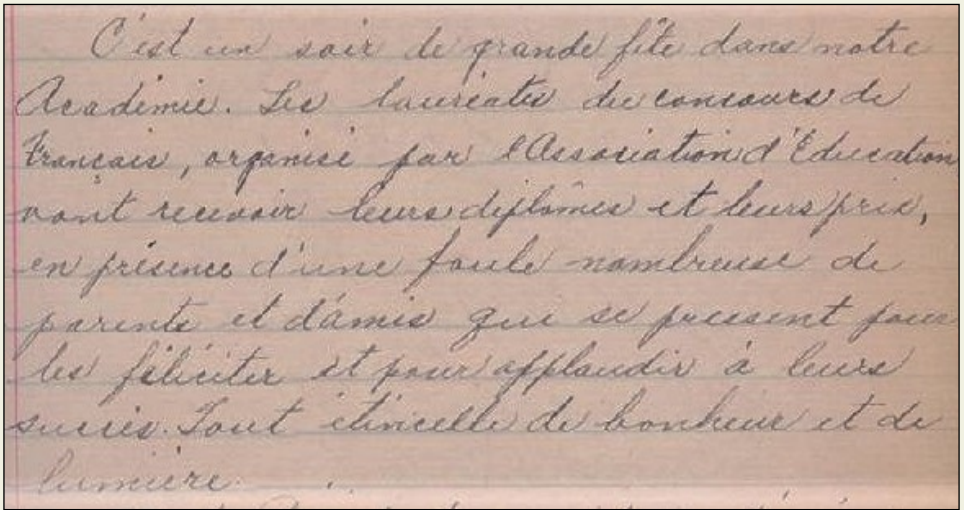 C'est un soir de grande fête dans notre
Académie. Les lauréats du concours de
Français, organisé par l'Association d'Education
vont recevoir leurs diplômes et leurs prix,
en présence d'une foule nombreuse de
parents et d'amis qui se pressent pour
les féliciter et pour applaudir à leurs
succès. Tout étincelle de bonheur et de
lumière.